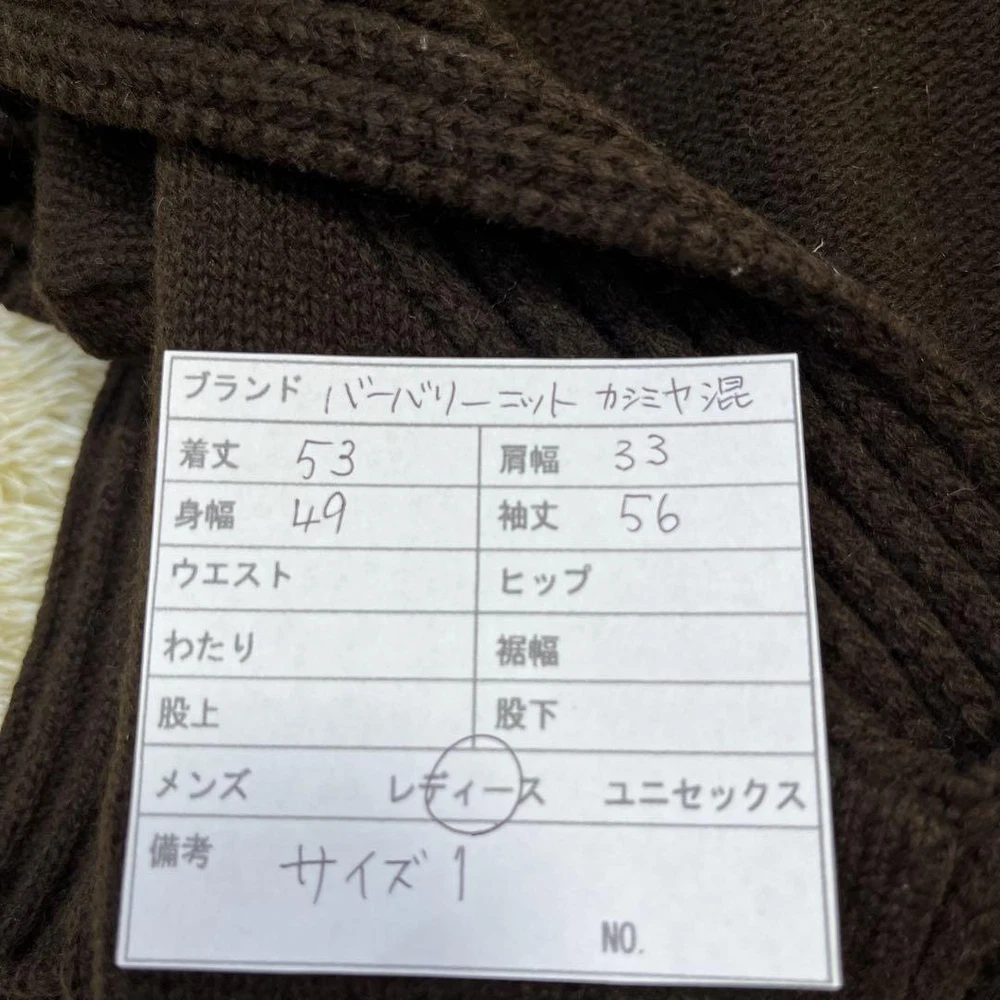 ブランド バーバリーニット カシミヤ混
着丈 53 肩幅 33
身幅 49 袖丈 56
ウエスト ヒップ
わたり 裾幅
股上 股下
メンズ レディース ユニセックス
備考 サイズ 1
NO.